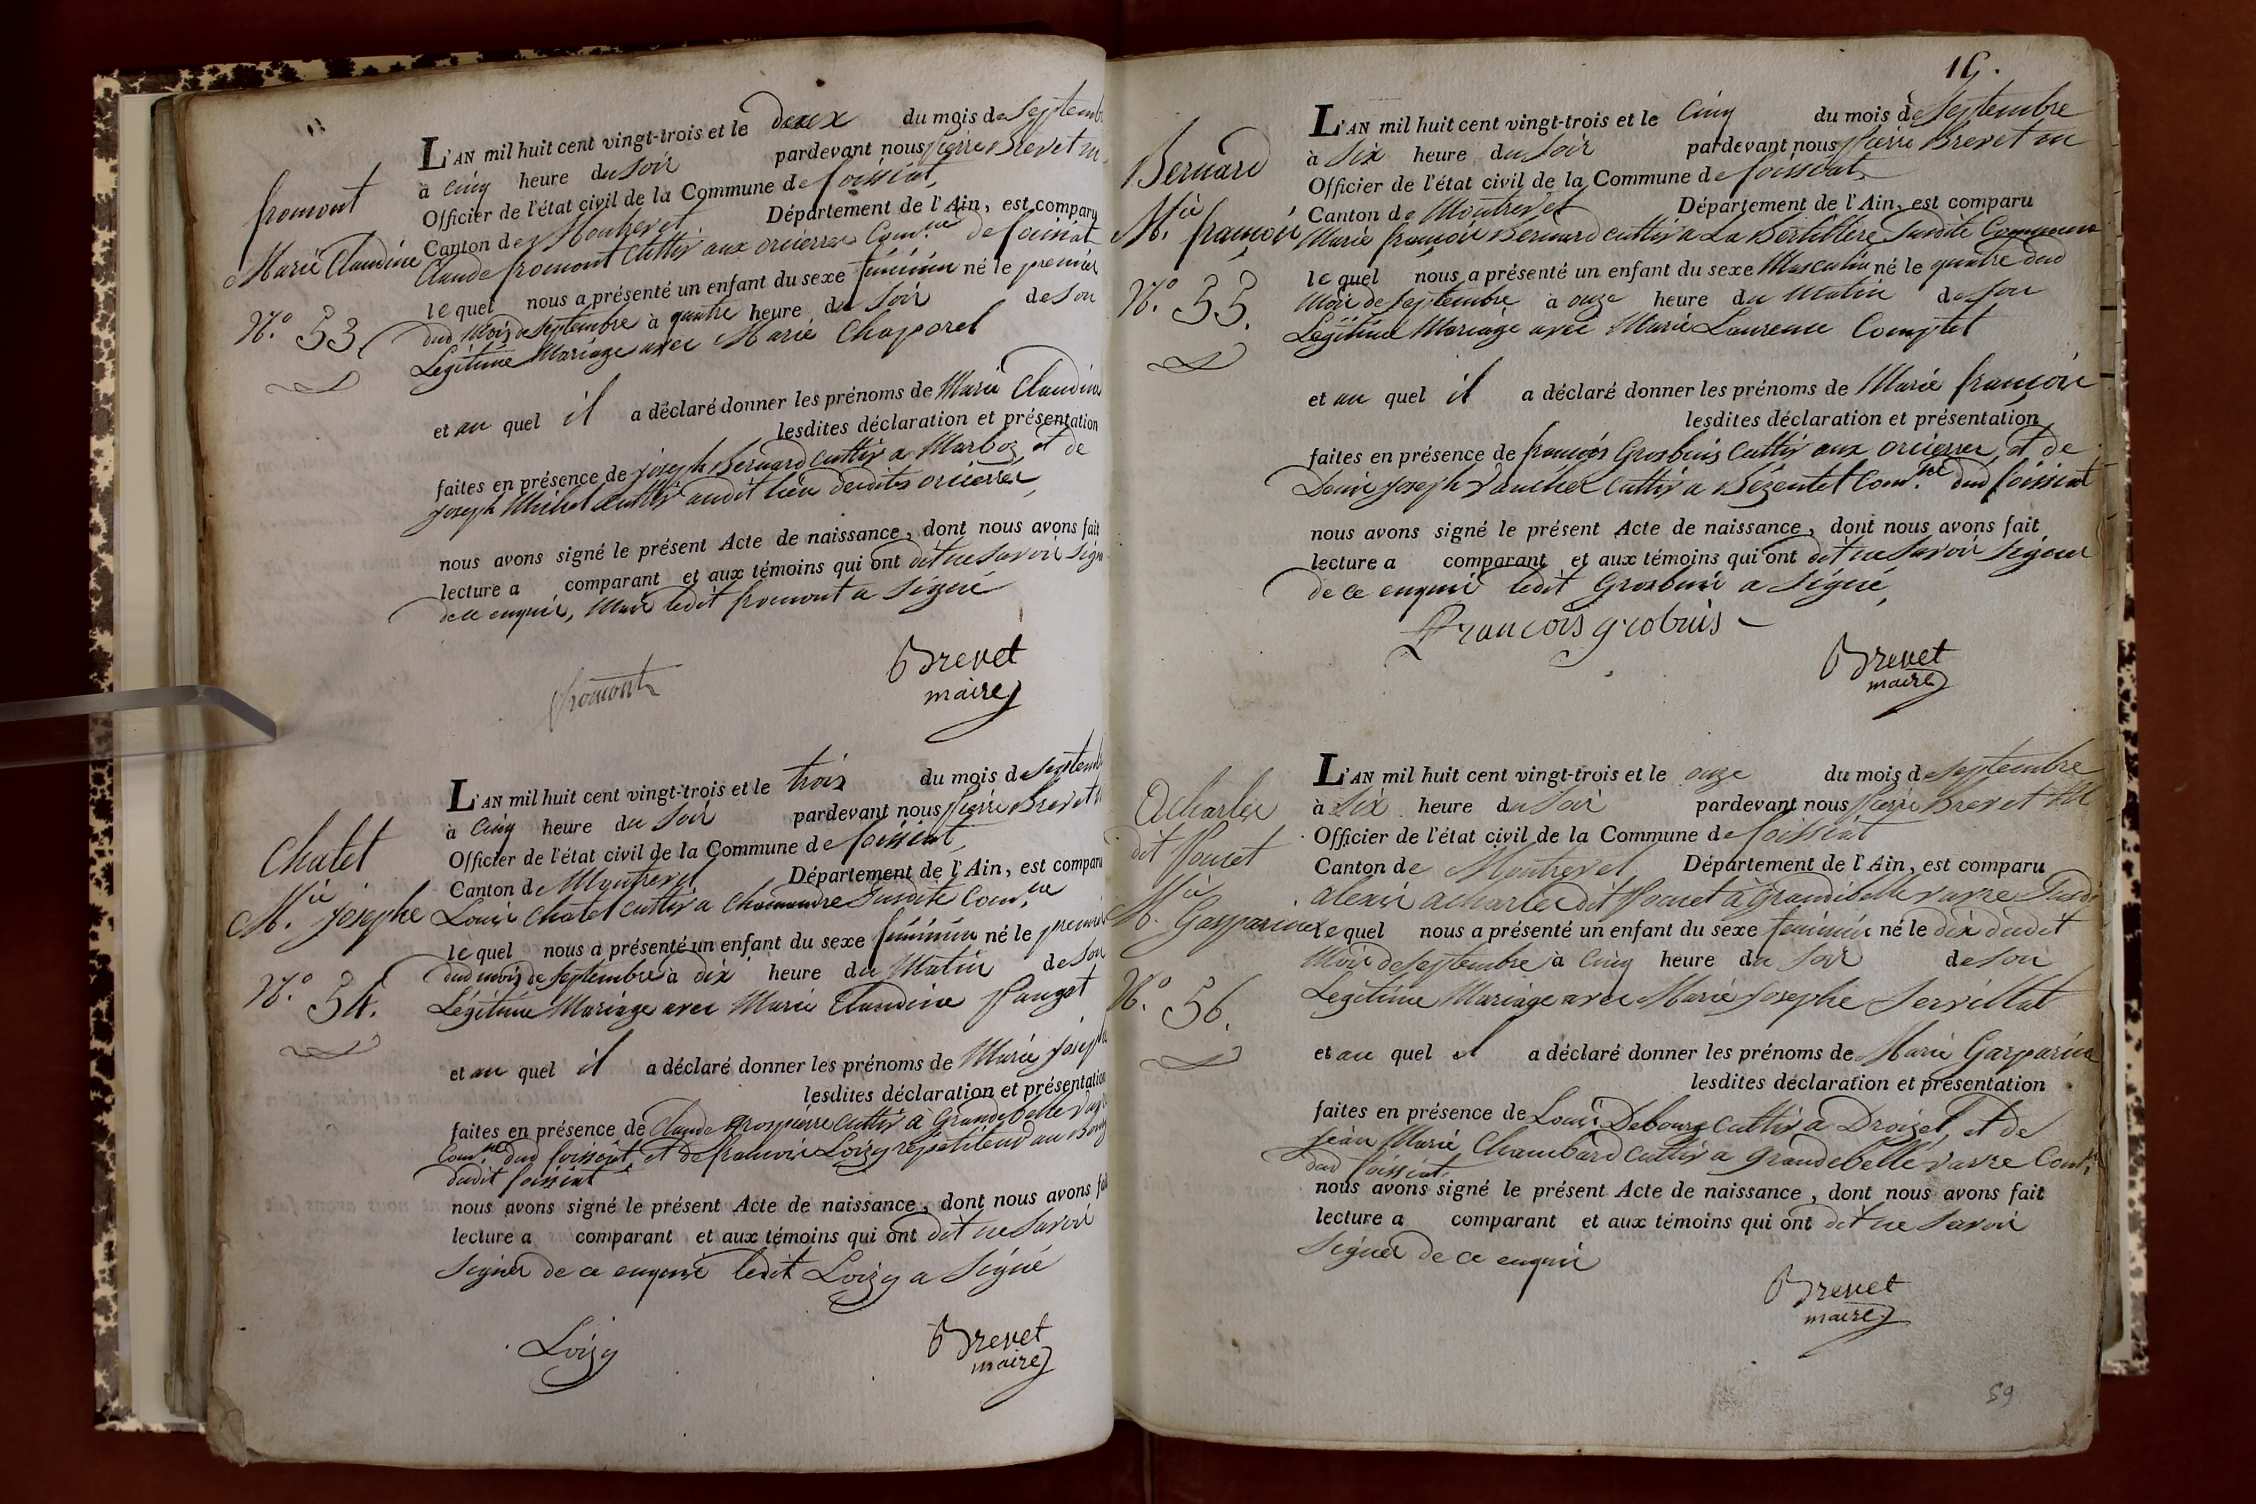 fromont
Marie Claudine
N.o 53
L'AN mil huit cent vingt-trois et le deux du mois de septemb
à cinq heure du soir pardevant nous Pierre Brevet m
Officier de l'état civil de la Commune de foissiat
Canton de Montrevel Département de l'Ain, est comparu
Claude fromont Cultiv.r aux oricerres Com.ne de foissiat
lequel nous a présenté un enfant du sexe féminin né le premier
dud mois de septembre à quatre heure du soir de son
Légitime Mariage avec Marie Chaporel
et au quel il a déclaré donner les prénoms de Marie Claudine
lesdites déclaration et présentation
faites en présence de joseph Bernard cultiv.r a Marboz, et de
joseph Michel cultiv.r audit lieu desdites oricerres
nous avons signé le présent Acte de naissance, dont nous avons fait
lecture a comparant et aux témoins qui ont dit ne savoir signe
de ce enquis, Mais ledit fromont a signé
fromont
Brevet
maire
Chatel
M.ie josephe
N.o 54.
L'AN mil huit cent vingt-trois et le trois du mois de septemb
à cinq heure du soir pardevant nous Pierre Brevet
Officier de l'état civil de la Commune de foissiat
Canton de Montrevel Département de l'Ain, est comparu
Louis Chatel cultiv.r a Chamandre susdite Com.ne
lequel nous a présenté un enfant du sexe féminin né le premier
dud mois de septembre à dix heure du Matin de son
Légitime Mariage avec Marie Claudine Pauget
et au quel il a déclaré donner les prénoms de Marie joseph
lesdites déclaration et présentation
faites en présence de Claude grospierre cultiv.r à Grandebelle
Com.ne dud foissiat, et de francois Loizy répétiteur au Bourg
dudit foissiat
nous avons signé le présent Acte de naissance, dont nous avons fai
lecture a comparant et aux témoins qui ont dit ne savoir
signer de ce enquis ledit Loizy a signé
Loizy
Brevet
maire
16.
Bernard
M.ie françois
N.o 55.
L'AN mil huit cent vingt-trois et le cinq du mois de septembre
à six heure du soir pardevant nous Pierre Brevet m
Officier de l'état civil de la Commune de foissiat
Canton de Montrevel Département de l'Ain, est comparu
Marie françois Bernard cultiv.r a La Bertillere susdite Commune
lequel nous a présenté un enfant du sexe Masculin né le quatre dud
mois de septembre à onze heure du Matin de son
Légitime Mariage avec Marie Laurence Comptet
et au quel il a déclaré donner les prénoms de Marie françois
lesdites déclaration et présentation
faites en présence de françois Grosbuis cultiv.r aux oricerres, et de
Denis joseph Vaucher cultiv.r a Bézentet Com.ne dud foissiat
nous avons signé le présent Acte de naissance, dont nous avons fait
lecture a comparant et aux témoins qui ont dit ne savoir signer
de ce enquis ledit Grosbuis a signé
francois grobuis
Brevet
maire
Acharles
dit Poncet
M.ie Gasparine
N.o 56.
L'AN mil huit cent vingt-trois et le onze du mois de septembre
à six heure du soir pardevant nous Pierre Brevet M
Officier de l'état civil de la Commune de foissiat
Canton de Montrevel Département de l'Ain, est comparu
alexis acharles dit Poncet à Grandebelle vavre susd
lequel nous a présenté un enfant du sexe féminin né le dix dudit
Mois de septembre à cinq heure du soir de son
Légitime Mariage avec Marie josephe Servillat
et au quel il a déclaré donner les prénoms de Marie Gasparine
lesdites déclaration et présentation
faites en présence de Louis Debourg cultiv.r a Droizel, et de
jean Marie Chambard cultiv.r a grandebelle vavre Com.ne
dud foissiat
nous avons signé le présent Acte de naissance, dont nous avons fait
lecture a comparant et aux témoins qui ont dit ne savoir
signer de ce enquis
Brevet
maire
59